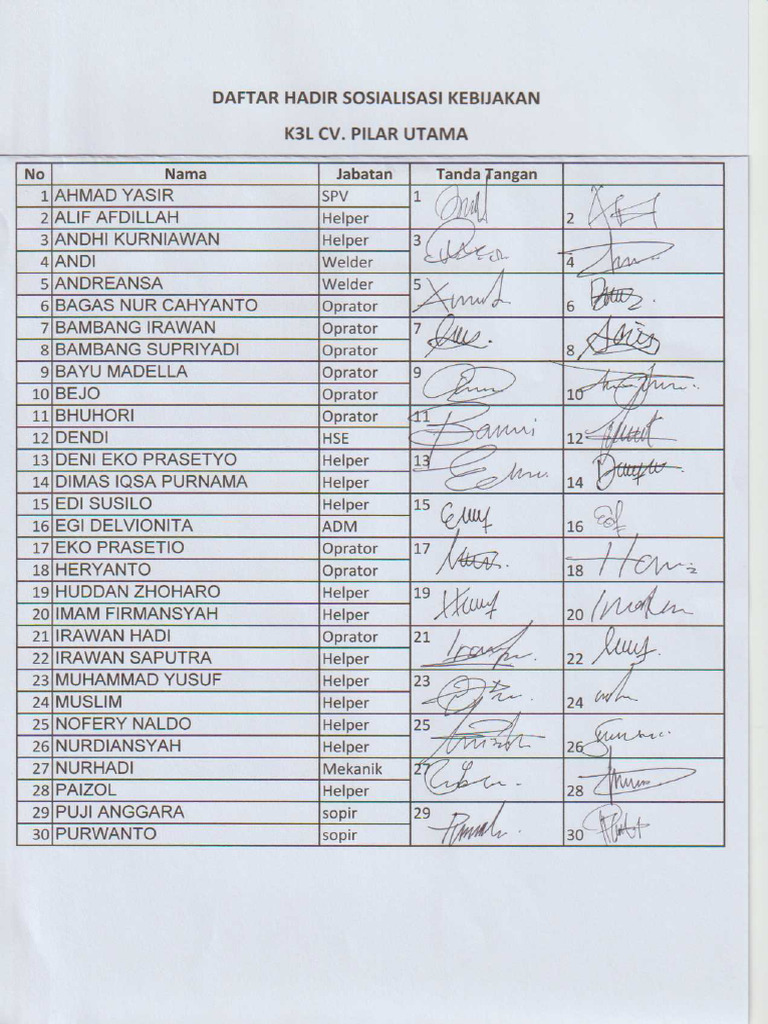 DAFTAR HADIR SOSIALISASI KEBIJAKAN
K3L CV. PILAR UTAMA
No Nama Jabatan Tanda Tangan
1 AHMAD YASIR SPV 1
2 ALIF AFDILLAH Helper 2
3 ANDHI KURNIAWAN Helper 3
4 ANDI Welder 4
5 ANDREANSA Welder 5
6 BAGAS NUR CAHYANTO Oprator 6
7 BAMBANG IRAWAN Oprator 7
8 BAMBANG SUPRIYADI Oprator 8
9 BAYU MADELLA Oprator 9
10 BEJO Oprator 10
11 BHUHORI Oprator 11
12 DENDI HSE 12
13 DENI EKO PRASETYO Helper 13
14 DIMAS IQSA PURNAMA Helper 14
15 EDI SUSILO Helper 15
16 EGI DELVIONITA ADM 16
17 EKO PRASETIO Oprator 17
18 HERYANTO Oprator 18
19 HUDDAN ZHOHARO Helper 19
20 IMAM FIRMANSYAH Helper 20
21 IRAWAN HADI Oprator 21
22 IRAWAN SAPUTRA Helper 22
23 MUHAMMAD YUSUF Helper 23
24 MUSLIM Helper 24
25 NOFERY NALDO Helper 25
26 NURDIANSYAH Helper 26
27 NURHADI Mekanik 27
28 PAIZOL Helper 28
29 PUJI ANGGARA sopir 29
30 PURWANTO sopir 30